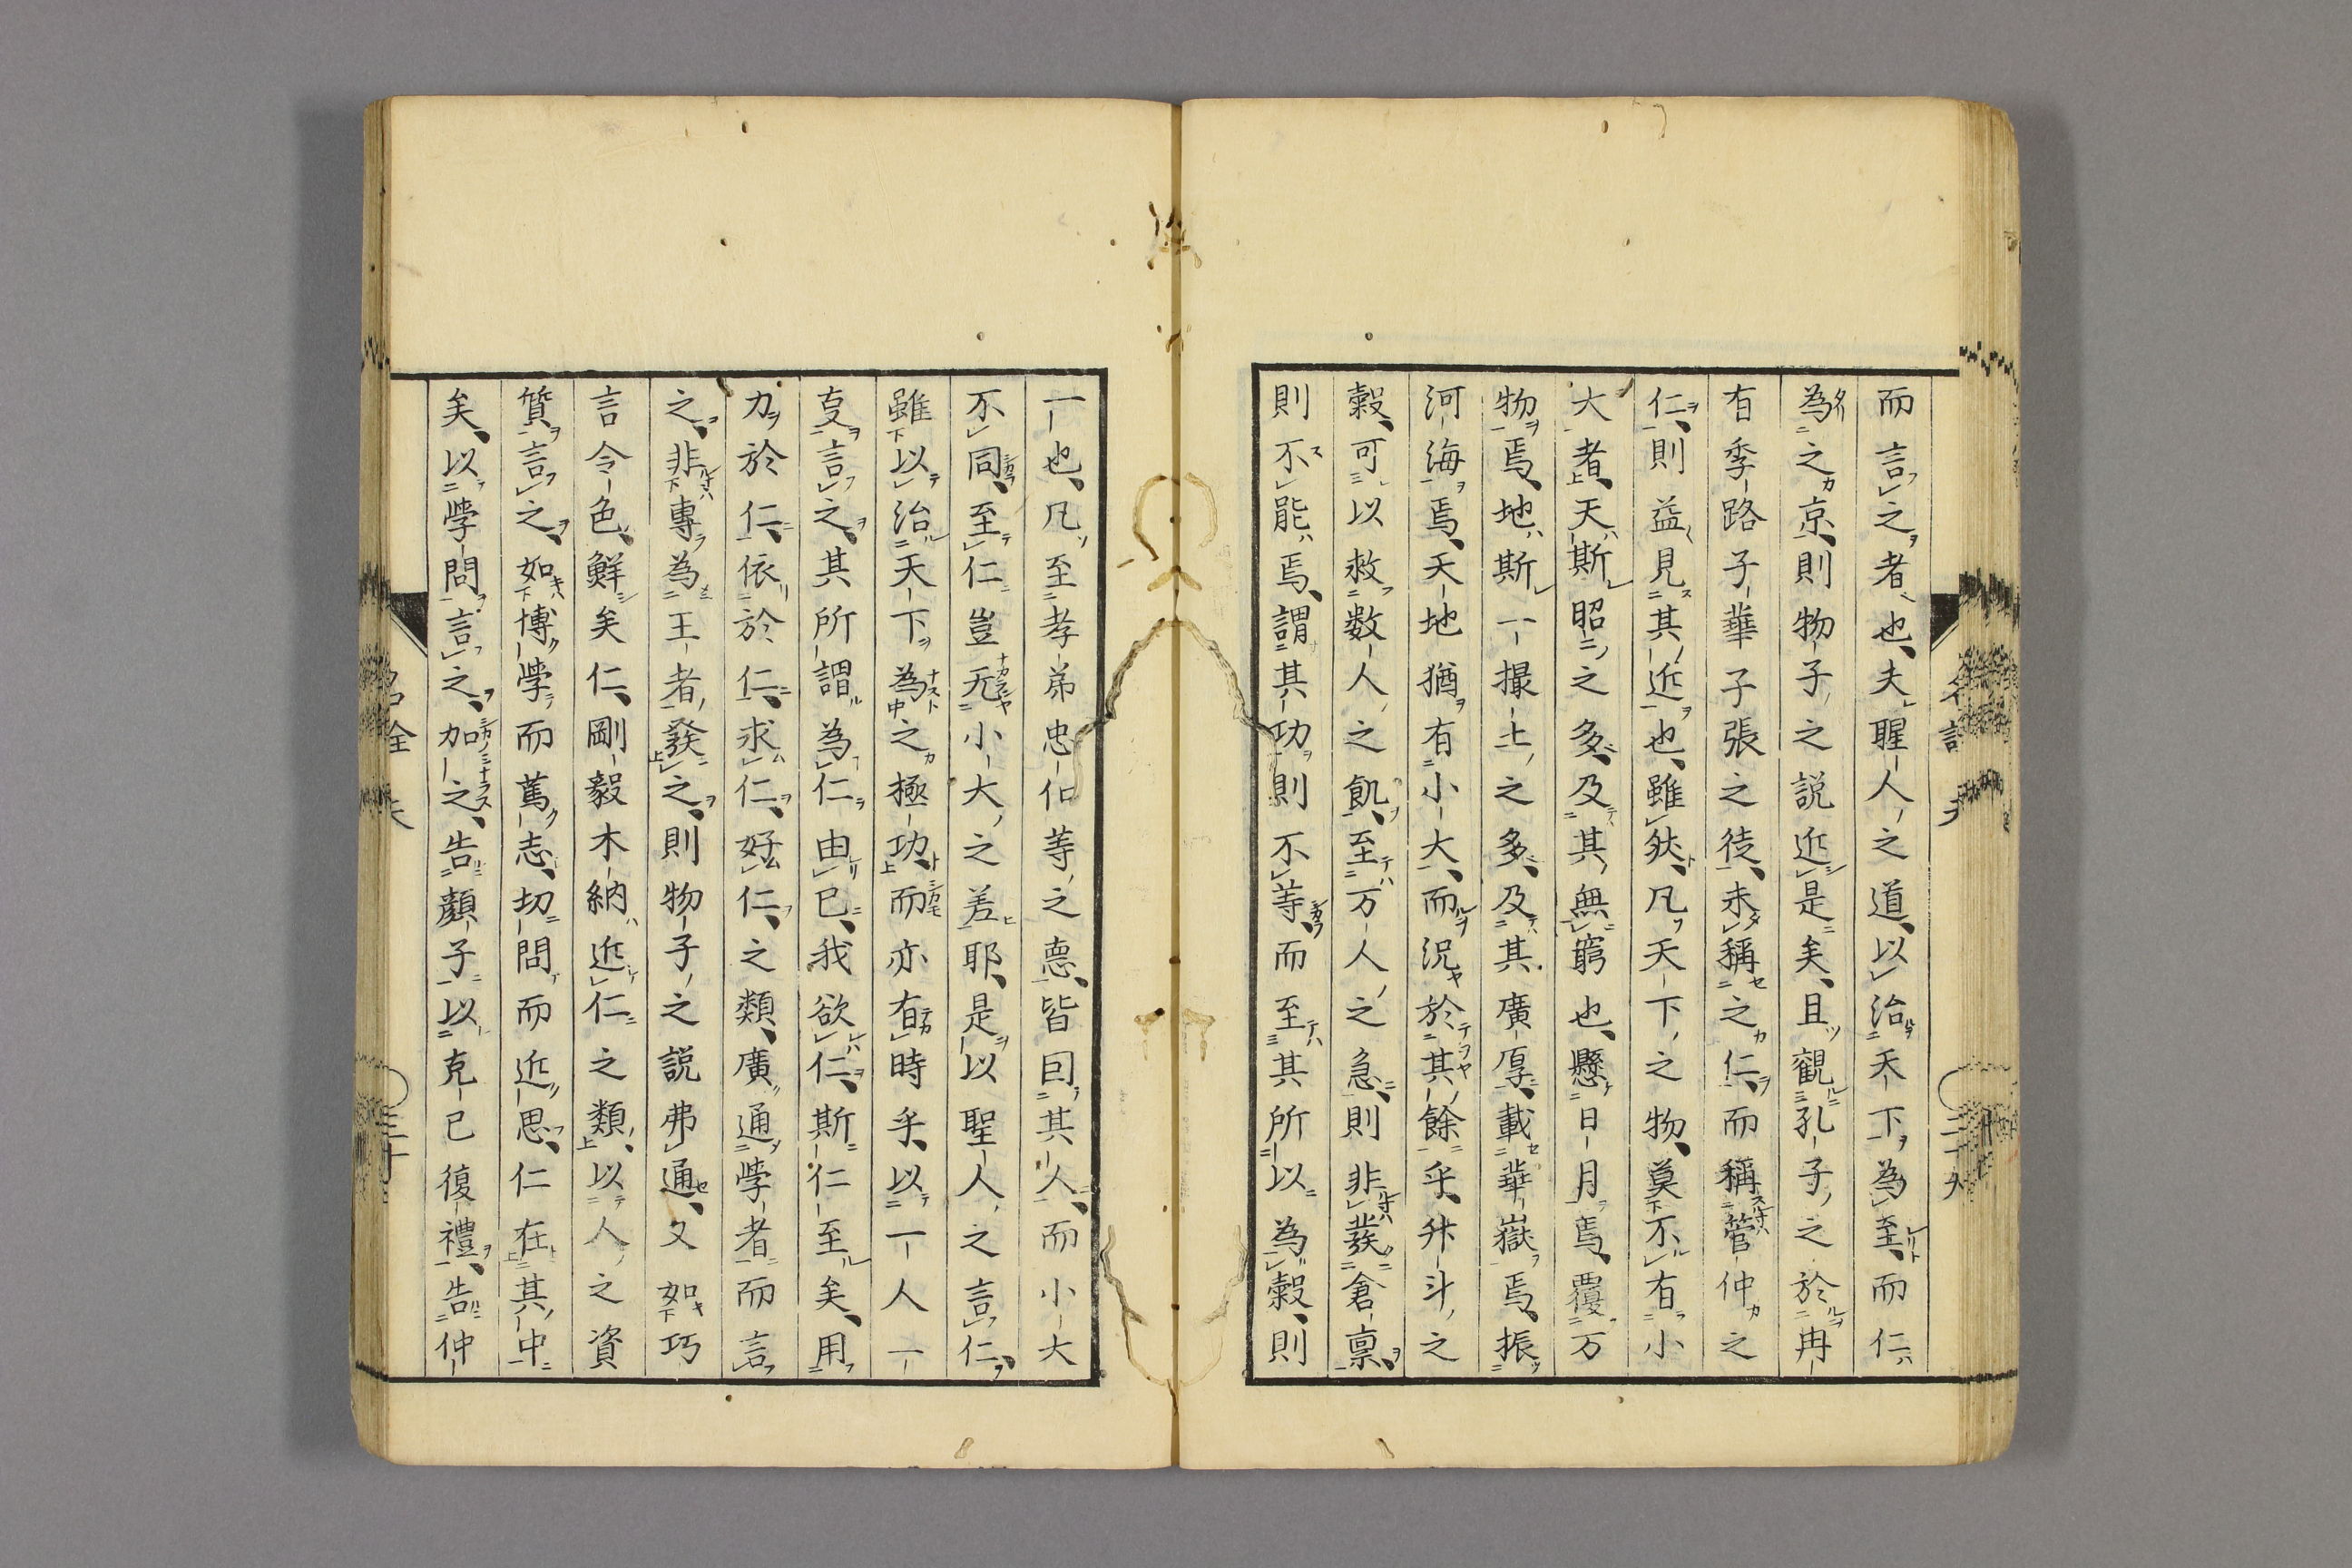 而言之者也夫聖人之道以治天下為至而仁
為之京則物子之説近是矣且觀孔子之於冉
有季路子華子張之徒未稱之仁而稱管仲之
仁則益見其近也雖然凡天下之物莫不有小
大者天斯昭〻之多及其無窮也懸日月焉覆万
物焉地斯一撮土之多及其廣厚載華嶽焉振
河海焉天地猶有小大而況於其餘乎升斗之
穀可以救数人之飢至万人之急則非發倉稟
則不能焉謂其功則不等而至其所以為穀則
一也凡至孝弟忠仁等之悳皆因其人而小大
不同至仁豈无小大之差耶是以聖人之言仁
雖以治天下為之極功而亦有時乎以一人一
叓言之其所謂為仁由已我欲仁斯仁至矣用
力於仁依於仁求仁好仁之類廣通學者而言
之非專為王者發之則物子之説弗通又如巧
言令色鮮矣仁剛毅木納近仁之類以人之資
質言之如博學而篤志切問而近思仁在其中
矣以學問言之加之告顏子以克已復禮告仲